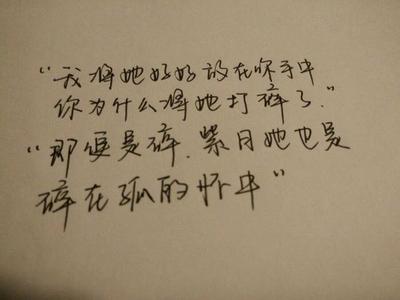 “我将她好好放在你手中
你为什么将她打碎了.”
“那便是碎.紫月她也是
碎在孤的怀中”